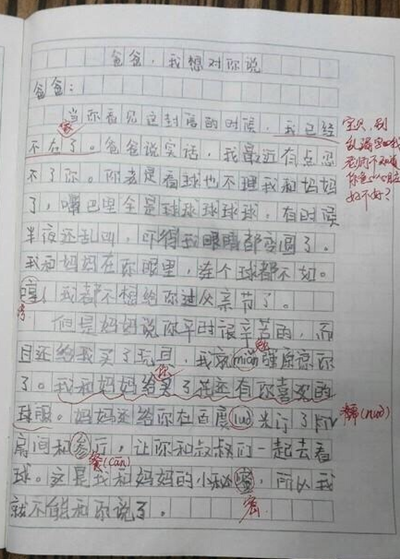 爸爸，我想对你说
爸爸：
当你看见这封信的时候，我已经
家
不在了。爸爸说实话，我最近有点忍
不了你。你老是看球也不理我和妈妈
了，嘴巴里全是球球球球球，有时候
半夜还乱叫，吓得我眼睛都变圆了。
我和妈妈在你眼里，连个球都不如。
哼！我都不想给你过父亲节了。
但是妈妈说你平时很辛苦的，而
且还给我买了玩具，我就mian强原谅你
了。我和妈妈给买了花还有你喜欢的
球服。妈妈还给你在百度nuo米订了
房间和参厅，让你和叔叔们一起去看
餐(cān)
球。这是我和妈妈的小秘蜜，所以我
就不能和你说了。
密
宝贝，别
糯(nuò)